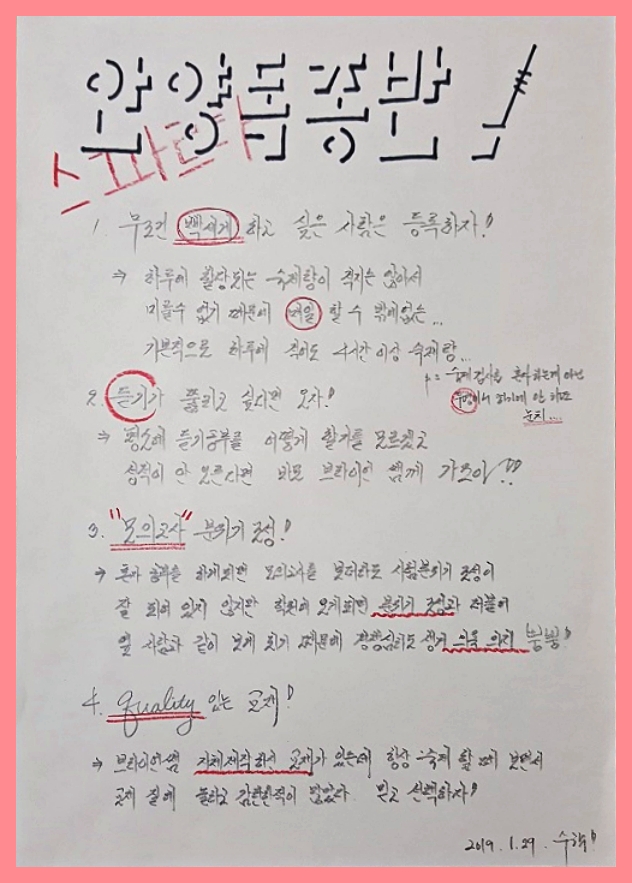 안양토종반!
스파르타
1. 무조건 빡세게 하고 싶은 사람은 등록하자!
⇒ 하루에 할당되는 숙제량이 적지는 않아서
미룰수 없기 때문에 매일 할 수 밖에없는...
기본적으로 하루에 적어도 4시간 이상 숙제량...
+= 숙제검사를 혼자 하는게 아닌
이서 하기에 안 하면
눈치...
2. 듣기가 뚫리고 싶다면 오자!
⇒ 평소에 듣기공부를 어떻게 할지를 모르겠고
성적이 안 오른다면 바로 브라이언 쌤께 가즈아!!
3. "모의고사" 분위기 조성!
⇒ 혼자 공부를 하게되면 모의고사를 보더라도 시험분위기 조성이
잘 되어 있지 않지만 학원에 오게되면 분위기 조성과 더불어
옆 사람과 같이 보게 되기 때문에 경쟁심리도 생겨 의욕 의지 뿜뿜!
4. Quality 있는 교재!
⇒ 브라이언쌤 자체제작하신 교재가 있는데 항상 숙제 할 때 보면서
교재 질에 놀라고 감탄한적이 많았다. 믿고 선택하자!
2019. 1. 29.